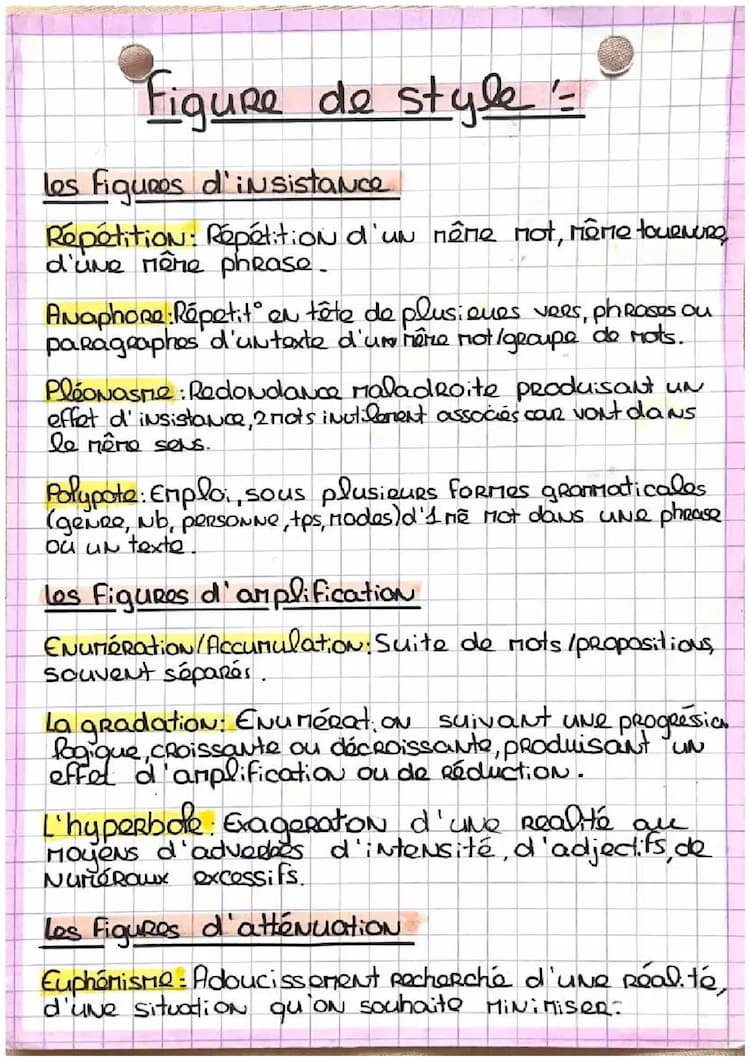 Figure de style :
Les figures d'insistance
Répétition : Répétition d'un même mot, même tournure,
d'une même phrase.
Anaphore : Répétit° en tête de plusieurs vers, phrases ou
paragraphes d'un texte d'un même mot/groupe de mots.
Pléonasme : Redondance maladroite produisant un
effet d'insistance, 2 mots inutilement associés car vont dans
le même sens.
Polypote : Emploi, sous plusieurs formes grammaticales
(genre, nb, personne, tps, modes) d'1 mê mot dans une phrase
ou un texte.
Les figures d'amplification
Enumération/Accumulation : Suite de mots/propositions,
souvent séparés.
La gradation : Enumération suivant une progréssion
logique, croissante ou décroissante, produisant un
effet d'amplification ou de réduction.
L'hyperbole : Exageraton d'une realité au
moyens d'adverbes d'intensité, d'adjectifs, de
numéraux excessifs.
Les figures d'atténuation
Euphémisme : Adoucissement recherché d'une réalité,
d'une situation qu'on souhaite minimiser.